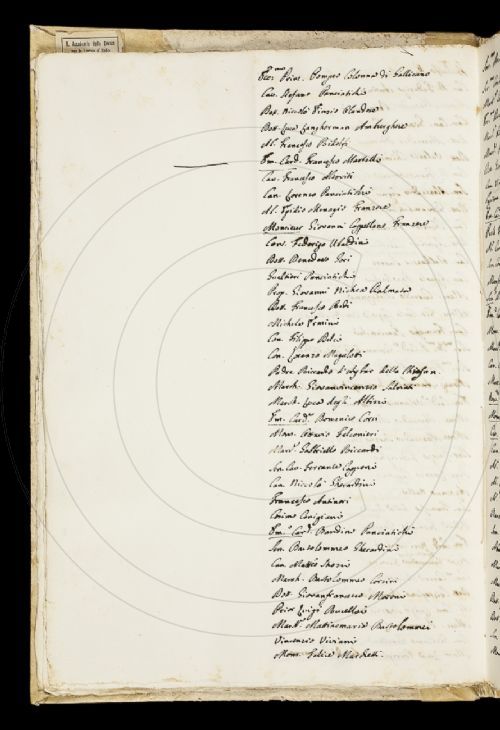 R. Accademia della Crusca
Ecc.mo Princ. Pompeo Colonna di Gallicano
Cav. Stefano Panciatichi
Bott. Niccolò Einsio Olandese
Bott. Luca Langherman Amburghese
Al. Francesco Ridolfi
Em. Card. Francesco Martelli
Cav. Francesco Altoviti
Can. Lorenzo Panciatichi
Al. Egidio Menagio Franzese
Monsieur Giovanni Cappellano Franzese
Cav. Federigo Ubaldini
Bott. Benedetto Gori
Gualtieri Panciatichi
Prop. Giovanni Michea
Bott. Francesco Redi
Michele Ermini
Con. Filippo
Con. Lorenzo Magalotti
Padre Riccardo della
March. Giovanvincenzio Salviati
March. Luca degli Albizzi
Em. Card. Domenico Corsi
Mons. Ottavio Falconieri
Mar. Gabbriello Riccardi
Sen. Cav. Ferrante Capponi
Can. Niccolò Gherardini
Francesco Antinori
Cosimo Canigiani
Em. Card. Bandino Panciatichi
Sen. Bartolommeo Gherardini
Can. Matteo Strozzi
March. Bartolommeo Corsini
Bott. Giovanfrancesco
Prior Luigi Rucellai
March. Mattiasmaria Bartolommei
Vincenzio Viviani
Mons. Felice Marchetti